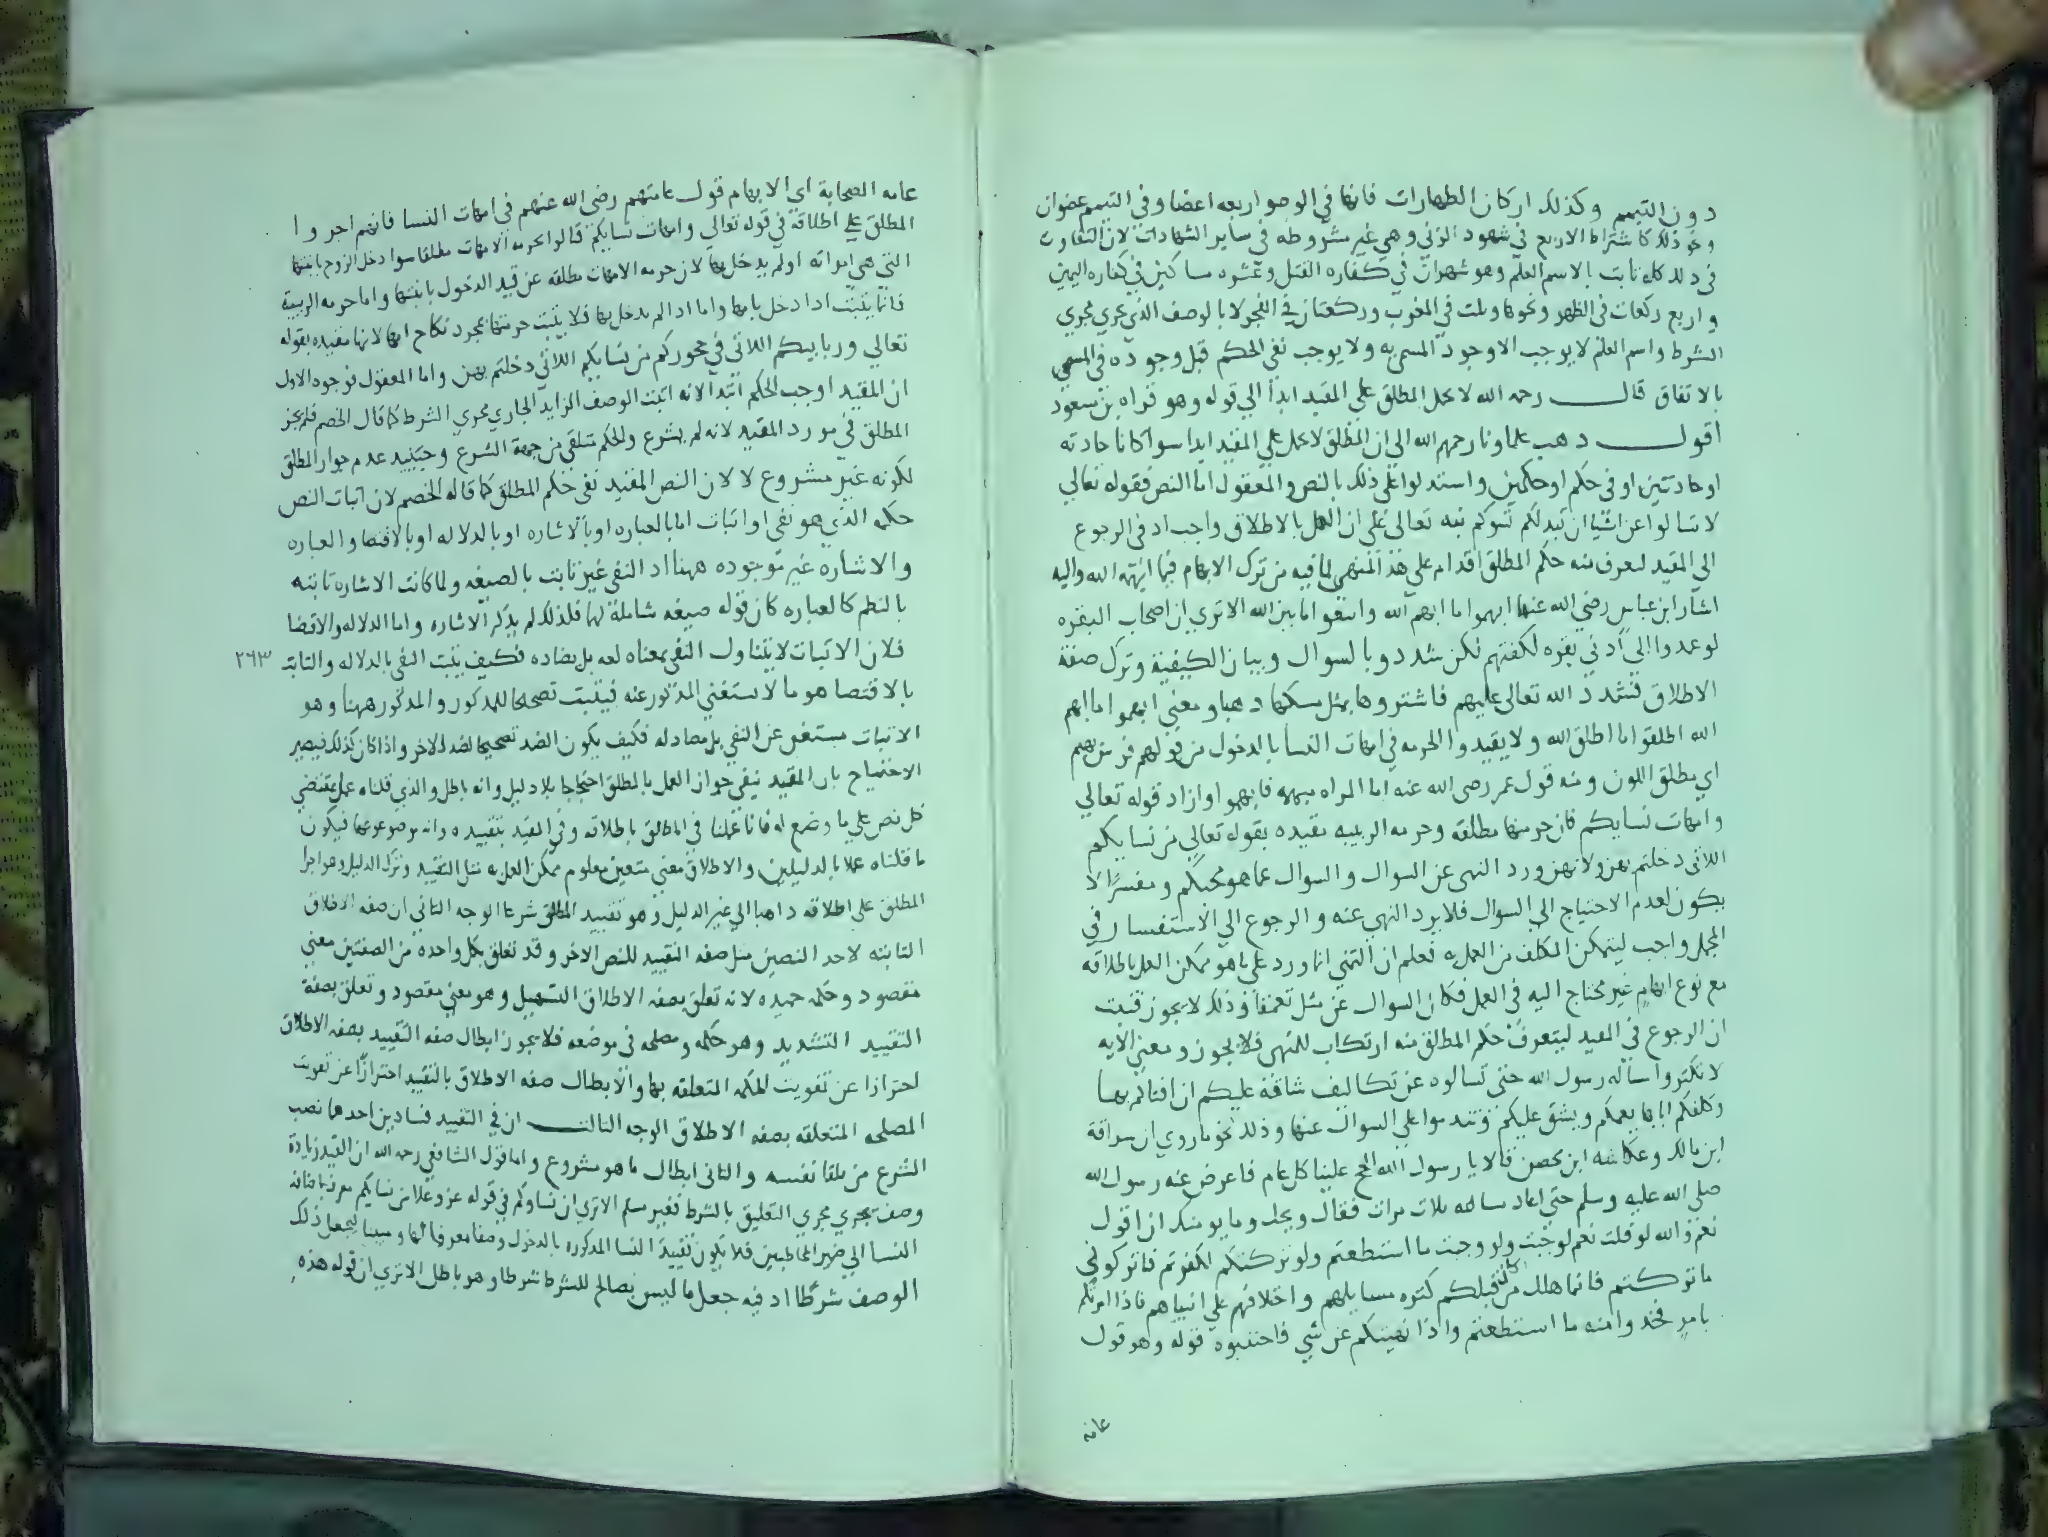 دون التيمم وكذلك اركان الطهارات فانها في الوضو اربعه اعضا وفي التيمم عضوان
ونحو ذلك كاشتراط الاربع في شهود الزني وهي غير مشروطه في ساير الشهادات لان التفاوت
في ذلك كله ثابت بالاسم العلم وهو شهران في كفاره القتل وعشره مساكين في كفاره اليمين
واربع ركعات في الظهر ونحوها وثلث في المغرب وركعتان في الفجر لا بالوصف الذي يجري مجري
الشرط واسم العلم لا يوجب الا وجود المسمي به ولا يوجب نفي الحكم قبل وجوده في المسمي
بالاتفاق قال رحمه الله لا يحمل المطلق علي المقيد ابدا الي قوله وهو قراه بن مسعود
اقول ذهب علماونا رحمهم الله الي ان المطلق لا يحمل علي المقيد ابدا سوا كانا حادثه
او حادثتين او في حكم او حكمين واستدلوا علي ذلك بالنص والمعقول اما النص فقوله تعالي
لا تسالوا عن اشيا ان تبد لكم تسوكم نبه تعالي علي ان العمل بالاطلاق واجب اذ في الرجوع
الي المقيد ليعرف منه حكم المطلق اقدام علي هذا المنهي لما فيه من ترك الابهام فيما ابهمه الله واليه
اشار ابن عباس رضي الله عنهما ابهموا ما ابهم الله واتبعوا ما بين الله الا تري ان اصحاب البقره
لو عمدوا الي ادني بقره لكفتهم لكن شددوا بالسوال وبيان الكيفية وترك صفة
الاطلاق فشدد الله تعالي عليهم فاشتروها بمثل مسكها ذهبا ومعني ابهموا ما ابهم
الله اطلقوا ما اطلق الله ولا يقيدوا الحرمه في امهات النسا بالدخول من قولهم فرس بهيم
اي مطلق اللون ومنه قول عمر رضي الله عنه اما المراه مبهمه فابهموا واراد قوله تعالي
وامهات نسايكم فان حرمتها مطلقه وحرمه الربيبه مقيده بقوله تعالي من نسايكم
اللاتي دخلتم بهن ولانه ورد النهي عن السوال والسوال عما هو محكم ومفسر لا
يكون لعدم الاحتياج الي السوال فلا يرد النهي عنه والرجوع الي الاستفسار في
المجمل واجب ليتمكن المكلف من العمل به فعلم ان النهي انما ورد علي ما هو ممكن العمل باطلاقه
مع نوع ابهام غير محتاج اليه في العمل فكان السوال عن مثله تعمقا وذلك لا يجوز فثبت
ان الرجوع في المقيد ليتعرف حكم المطلق منه ارتكاب للنهي فلا يجوز ومعني الايه
لا تكثروا مساله رسول الله حتي تسالوه عن تكاليف شاقة عليكم ان افتاكم بها
وكلفكم اياها يعمكم ويشق عليكم فتندموا علي السوال عنها وذلك نحو ما روي ان سراقة
ابن مالك وعكاشه ابن محصن قالا يا رسول الله الحج علينا كل عام فاعرض عنه رسول الله
صلي الله عليه وسلم حتي اعاد مسالته ثلاث مرات فقال ويحك وما يومنك ان اقول
نعم والله لو قلت نعم لوجبت ولو وجبت ما استطعتم ولو تركتكم لكفرتم فاتركوني
ما تركتكم فانما هلك من كان قبلكم كثره مسايلهم واختلافهم علي انبياهم فاذا امرتكم
بامر فخذوا منه ما استطعتم واذا نهيتكم عن شي فاجتنبوه قوله وهو قول
عامه
عامه الصحابة اي الابهام قول عامتهم رضي الله عنهم في امهات النسا فانهم اجروا
المطلق علي اطلاقه في قوله تعالي وامهات نسايكم قالوا حرمه الامهات مطلقا سوا دخل الزوج بابنتها
التي هي امراته او لم يدخل بها لان حرمه الامهات مطلقه عن قيد الدخول بابنتها واما حرمه الربيبة
فانما يثبت اذا دخل بامها واما اذا لم يدخل بها فلا يثبت حرمتها بمجرد نكاح امها لانها مقيده بقوله
تعالي وربايبكم اللاتي في حجوركم من نسايكم اللاتي دخلتم بهن واما المعقول فوجوه الاول
ان المقيد اوجب الحكم ابتدا لانه اثبت الوصف الزايد الجاري مجري الشرط كما قال الخصم فلم يجز
المطلق في مورد المقيد لانه لم يشرع والحكم متلقي من جهة الشرع وحينيذ عدم جواز المطلق
لكونه غير مشروع لا لان النص المقيد نفي حكم المطلق كما قاله الخصم لان اثبات النص
حكمه الذي هو نفي او اثبات اما بالعباره او بالاشاره او بالدلاله او بالاقتضا والعباره
والاشاره غير موجوده ههنا اذ النفي غير ثابت بالصيغه ولما كانت الاشاره ثابته
بالنظم كالعباره كان قوله صيغه شاملة لهما فلذلك لم يذكر الاشاره واما الدلاله والاقتضا
فلان الاثبات لا يتناول النفي بمعناه لغه بل يضاده فكيف يثبت النفي بالدلاله والثابت
٢٦٣
بالاقتضا هو ما لا يستغني المذكور عنه فيثبت تصحيحا للمذكور والمذكور ههنا وهو
الاثبات مستغن عن النفي بل مضاد له فكيف يكون الضد تصحيحا لضد الاخر واذا كان كذلك فيصير
الاحتياج بان المقيد ينفي جواز العمل بالمطلق احتجاجا بلا دليل وانه باطل والذي قلناه عمل بمقتضي
كل نص علي ما وضع له فانا عملنا في المطلق باطلاقه وفي المقيد بتقييده وانه موضوعهما فيكون
ما قلناه عملا بالدليلين والاطلاق معني متعين معلوم ممكن العمل به مثل التقييد وترك الدليل وهو اجرا
المطلق علي اطلاقه ذهابا الي غير الدليل وهو تقييد المطلق شرعا الوجه الثاني ان صفه الاطلاق
الثابته لاحد النصين مثل صفه التقييد للنص الاخر وقد تعلق بكل واحده من الصفتين معني
مقصود وحكمه حميده لانه تعلق بصفه الاطلاق التسهيل وهو معني مقصود وتعلق بصفة
التقييد التشديد وهو حكمه ومصلحه في موضعه فلا يجوز ابطال صفه التقييد بصفه الاطلاق
احترازا عن تفويت الحكمه المتعلقه بها ولا ابطال صفه الاطلاق بالتقييد احترازا عن تفويت
المصلحه المتعلقه بصفه الاطلاق الوجه الثالث ان في التقييد فسادين احدهما نصب
الشرع من تلقا نفسه والثاني ابطال ما هو مشروع واما قول الشافعي رحمه الله ان القيد زيادة
وصف يجري مجري التعليق بالشرط فغير مسلم الا تري ان نساوكم في قوله عز وعلا من نسايكم معرف باضافه
النسا الي ضمير المخاطبين فلا يكون تقييد النسا المذكوره بالدخول وصفا معرفا لها ومبينا ليجعل ذلك
الوصف شرطا اذ فيه جعل ما ليس بصالح للشرط شرطا وهو باطل الا تري ان قوله هذه